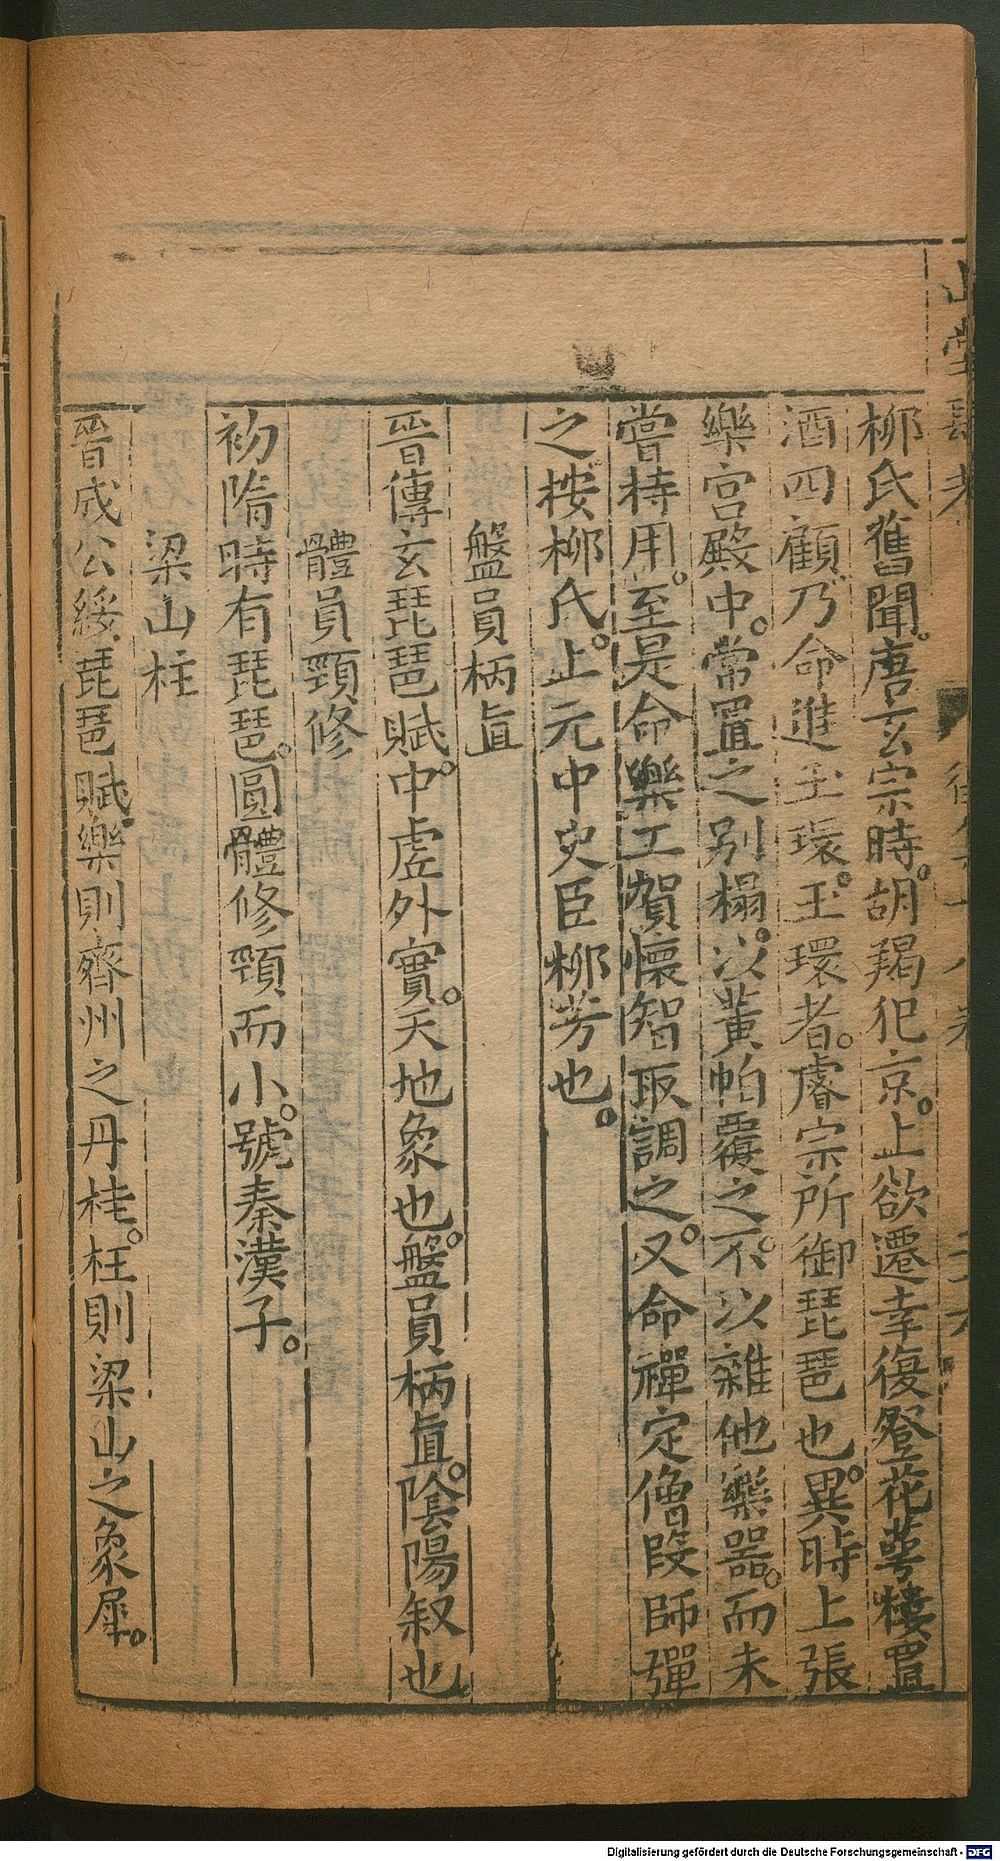 柳氏舊聞。唐玄宗時。胡羯犯京。上欲遷幸復登花萼樓置
酒四顧乃命進玉環。玉環者。睿宗所御琵琶也。異時上張
樂宫殿中。常置之别榻。以黃帕覆之。不以雜他樂器。而未
嘗持用。至是命樂工賀懷智取調之。又命禪定僧段師彈
之按柳氏。上元中史臣柳芳也。
盤員柄直
晉傳玄琵琶賦中。虛外實。天地象也。盤員柄直。陰陽叙也
體員頸修
初隋時有琵琶。圓體修頸而小。號秦漢子。
梁山柱
晉成公綏琵琶賦。樂則齊州之丹桂。柱則梁山之象犀。
Digitalisierung gefördert durch die Deutsche Forschungsgemeinschaft - DFG